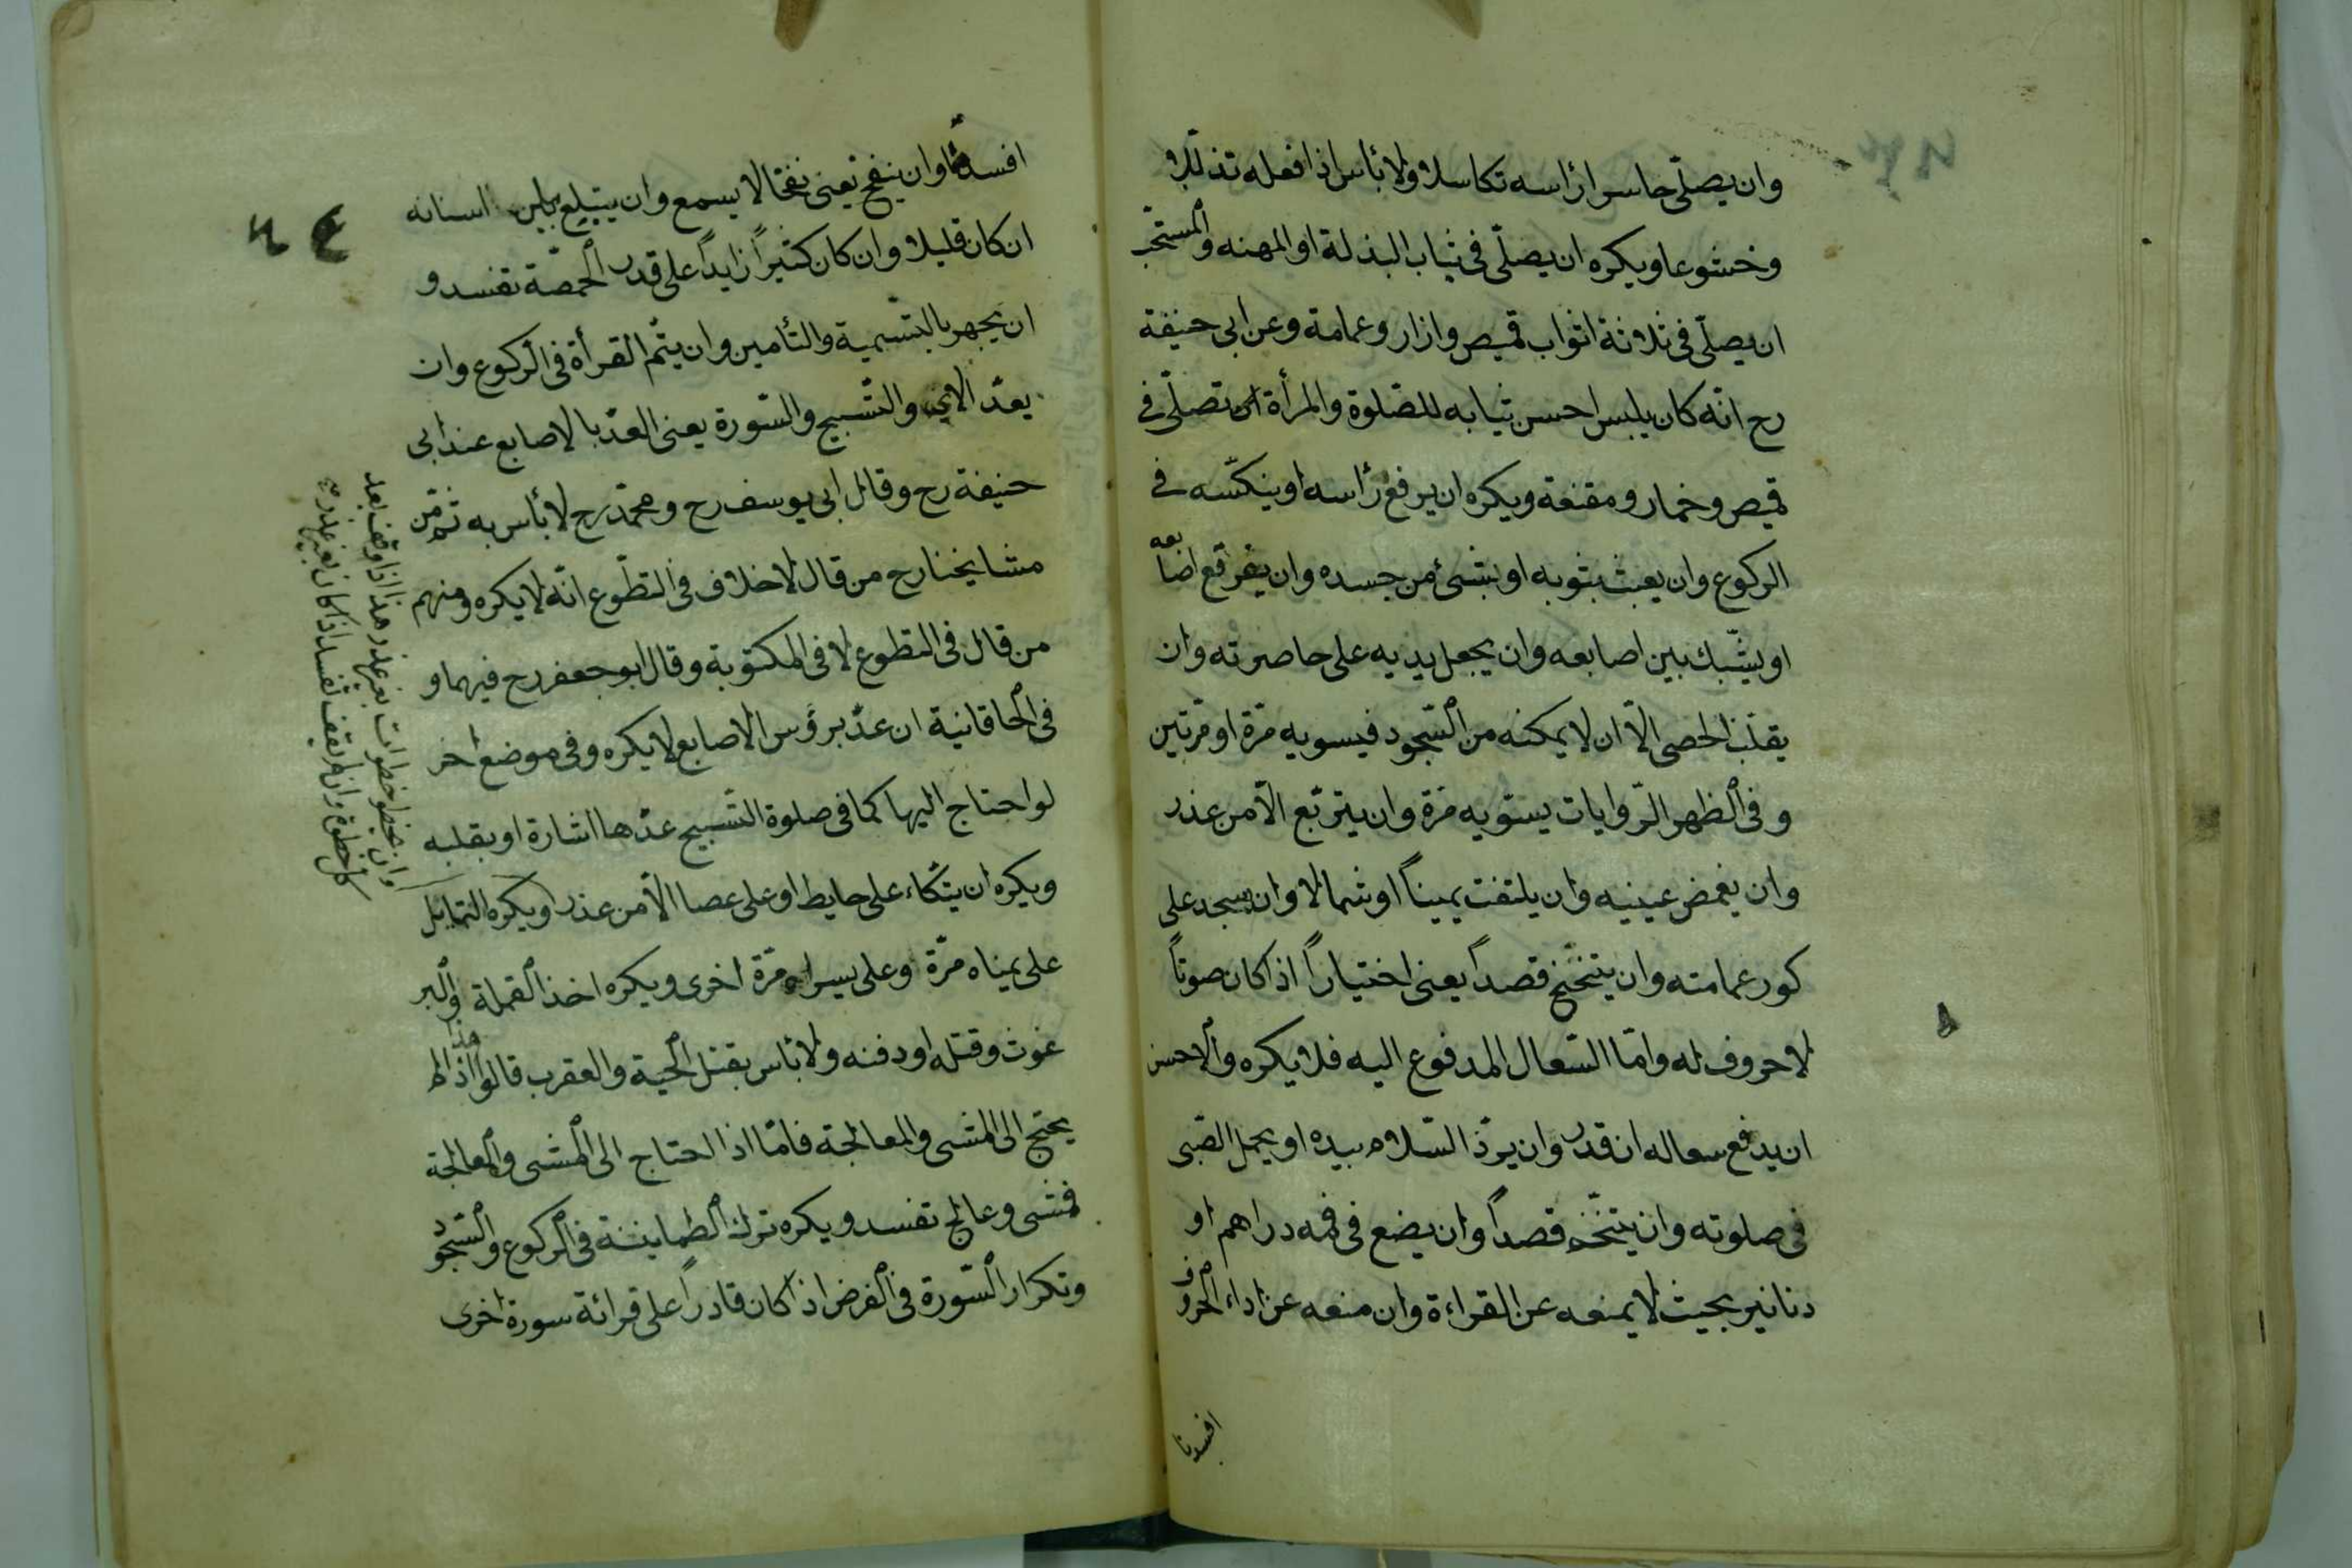 وان يصلّى حاسرا رأسه تكاسلا ولا بأس اذا فعله تذللا
وخشوعا ويكره ان يصلّى فى ثياب البذلة او المهنه والمستحب
ان يصلّى فى ثلاثة اثواب قميص وازار وعمامة وعن ابى حنيفة
رح انّه كان يلبس احسن ثيابه للصّلوة والمرأة ان تصلّى فى
قميص وخمار ومقنعة ويكره ان يرفع رأسه او ينكّسه فى
الركوع وان يعبث بثوبه او بشئ من جسده وان يفرقع اصابعه
او يشّبك بين اصابعه وان يجعل يديه على خاصرته وان
يقلّب الحصى الاّ ان لا يمكنه من السّجود فيسويه مرّة او مرّتين
وفى اظهر الرّوايات يسوّيه مرّة وان يتربّع الاّ من عذر
وان يغمض عينيه وان يلتفت يميناً او شمالا وان يسجد على
كور عمامته وان يتنحنح قصداً يعنى اختياراً اذا كان صوتاً
لا حروف له وامّا السّعال المدفوع اليه فلا يكره والاحسن
ان يدفع سعاله ان قدر وان يردّ السّلام بيده او يحمل الصّبى
فى صلوته وان يتنخّم قصداً وان يضع فى فمه دراهم او
دنانير بحيث لا يمنعه عن القراءة وان منعه عن اداء الحروف
افسدها
افسدها وان ينفخ يعنى نفخا لا يسمع وان يبتلع ما بين اسنانه
ان كان قليلا وان كان كثيراً زايداً على قدر الحمّصة تفسد و
ان يجهر بالتسّمية والتأمين وان يتّم القرأة فى الركوع وان
يعدّ الاى والتسّبيح والسّورة يعنى العدّ بالاصابع عند ابى
حنيفة رح وقال ابى يوسف رح ومحمّد رح لا بأس به ثم من
مشايخنا رح من قال لا خلاف فى التطّوع انّه لا يكره ومنهم
من قال فى التطوع لا فى المكتوبة وقال ابو جعفر رح فيهما و
فى الخاقانية ان عدّ برؤس الاصابع لا يكره وفى موضع اخر
لو احتاج اليها كما فى صلوة التّسبيح عدّها اشارة او بقلبه
ويكره ان يتكاء على حايط او على عصا الاّ من عذر ويكره التمايل
على يمناه مرّة وعلى يسراه مرّة اخرى ويكره اخذ القملة والبر
غوث وقتله او دفنه ولا بأس بقتل الحية والعقرب قالوا هذا اذا لم
يحتج الى المشى والمعالجة فامّا اذا احتاج الى المشى والمعالجة
فمشى وعالج تفسد ويكره ترك الطمانينة فى الركوع والسّجود
وتكرار السّورة فى الفرض اذا كان قادراً على قرائة سورة اخرى
وان يخطو خطوات بغير عذر هذا اذا وقف بعد
كل خطوة وان لم يقف تفسد اذا كان بغير عذر